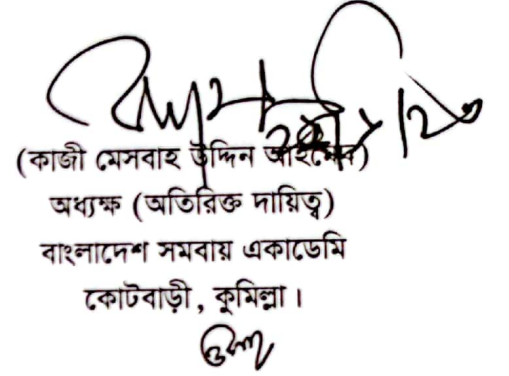 (কাজী মেসবাহ উদ্দিন আহমেদ)
অধ্যক্ষ (অতিরিক্ত দায়িত্ব)
বাংলাদেশ সমবায় একাডেমি
কোটবাড়ী, কুমিল্লা।